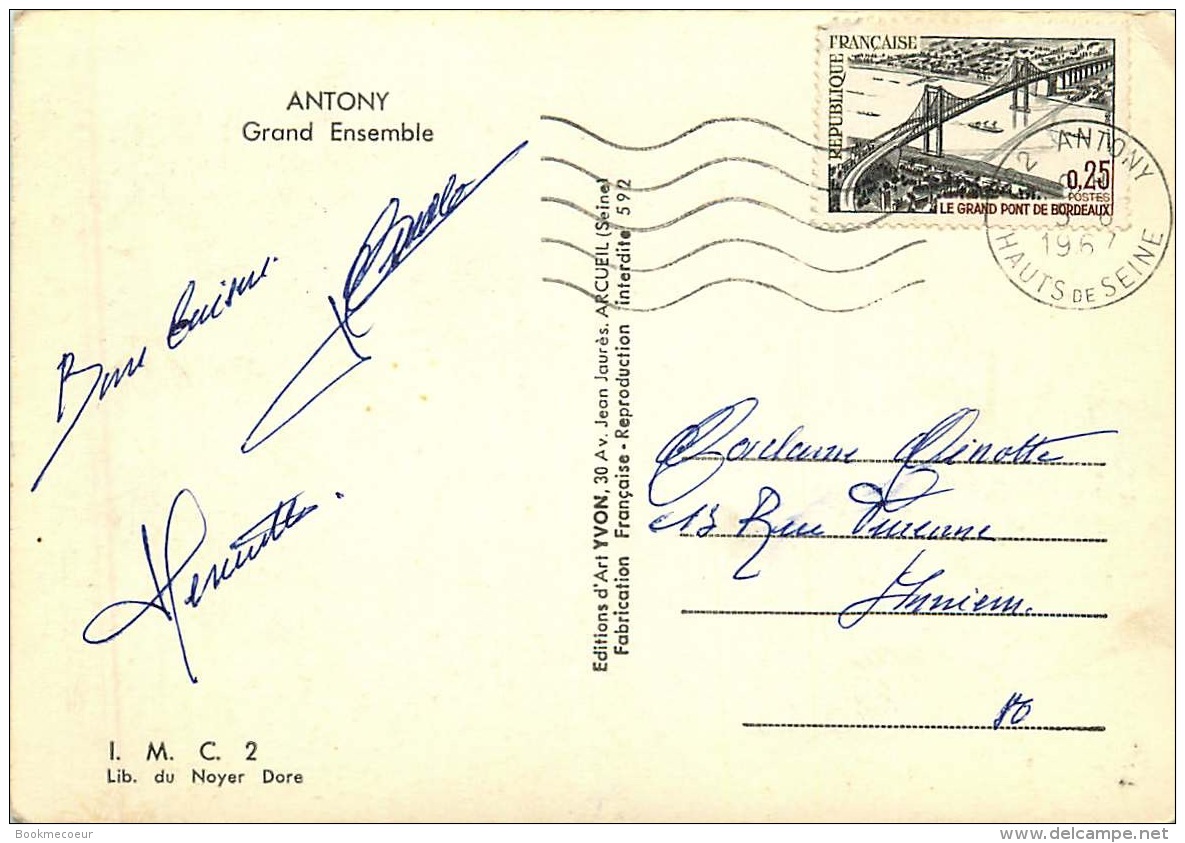 ANTONY
Grand Ensemble
RÉPUBLIQUE FRANÇAISE
0,25
POSTES
LE GRAND PONT DE BORDEAUX
2 ANTONY
1967
HAUTS DE SEINE
Editions d'Art YVON, 30 Av. Jean Jaurès, ARCUEIL (Seine)
Fabrication Française - Reproduction interdite 592
Henriette.
13 Rue Turenne
Amiens.
80
I. M. C. 2
Lib. du Noyer Dore
Bookmecoeur
www.delcampe.net